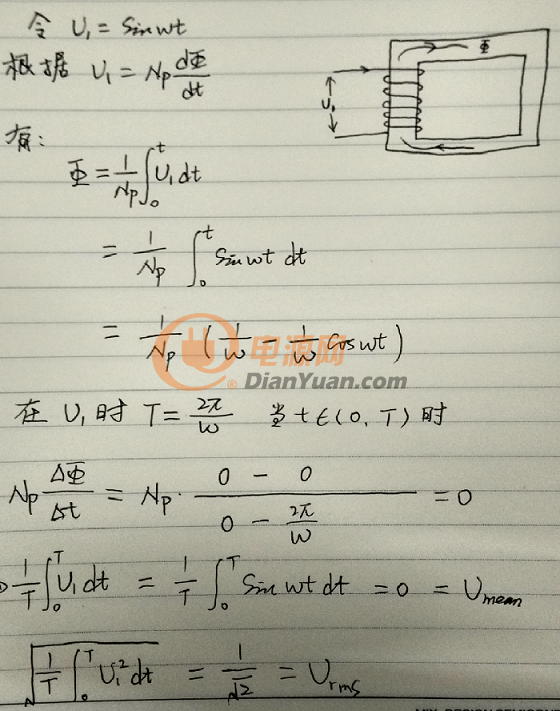 令 U₁ = Sin wt
根据 U₁ = Np dΦ/dt
Φ
U₁
有:
Φ = 1/Np ∫₀ᵗ U₁ dt
= 1/Np ∫₀ᵗ Sin wt dt
= 1/Np ( 1/w − 1/w Cos wt )
电源网
® DianYuan.com
在 U₁ 时 T = 2π/w 当 t ∈ (0, T) 时
Np ΔΦ/Δt = Np · (0 − 0)/(0 − 2π/w) = 0
1/T ∫₀ᵀ U₁ dt = 1/T ∫₀ᵀ Sin wt dt = 0 = Umean
√(1/T ∫₀ᵀ U₁² dt) = 1/√2 = Urms